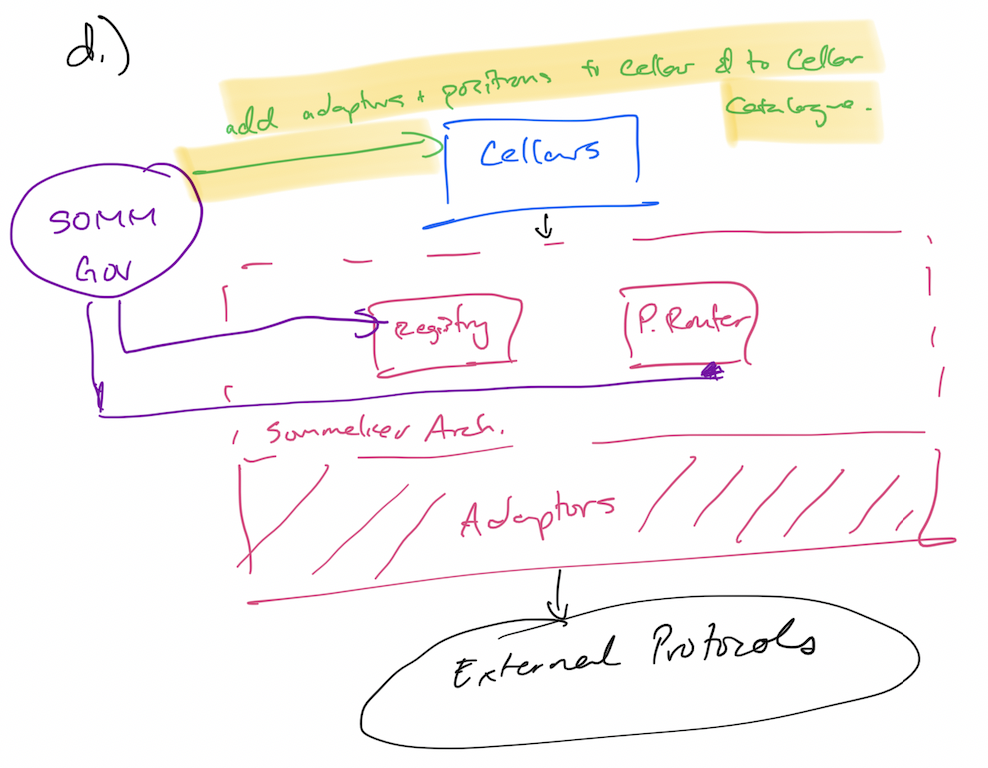 d.)
add adaptors + positions to cellar & to Cellar
Catalogue.
Cellars
SOMM
GOV
Registry
P. Router
Sommelier Arch.
Adaptors
External Protocols